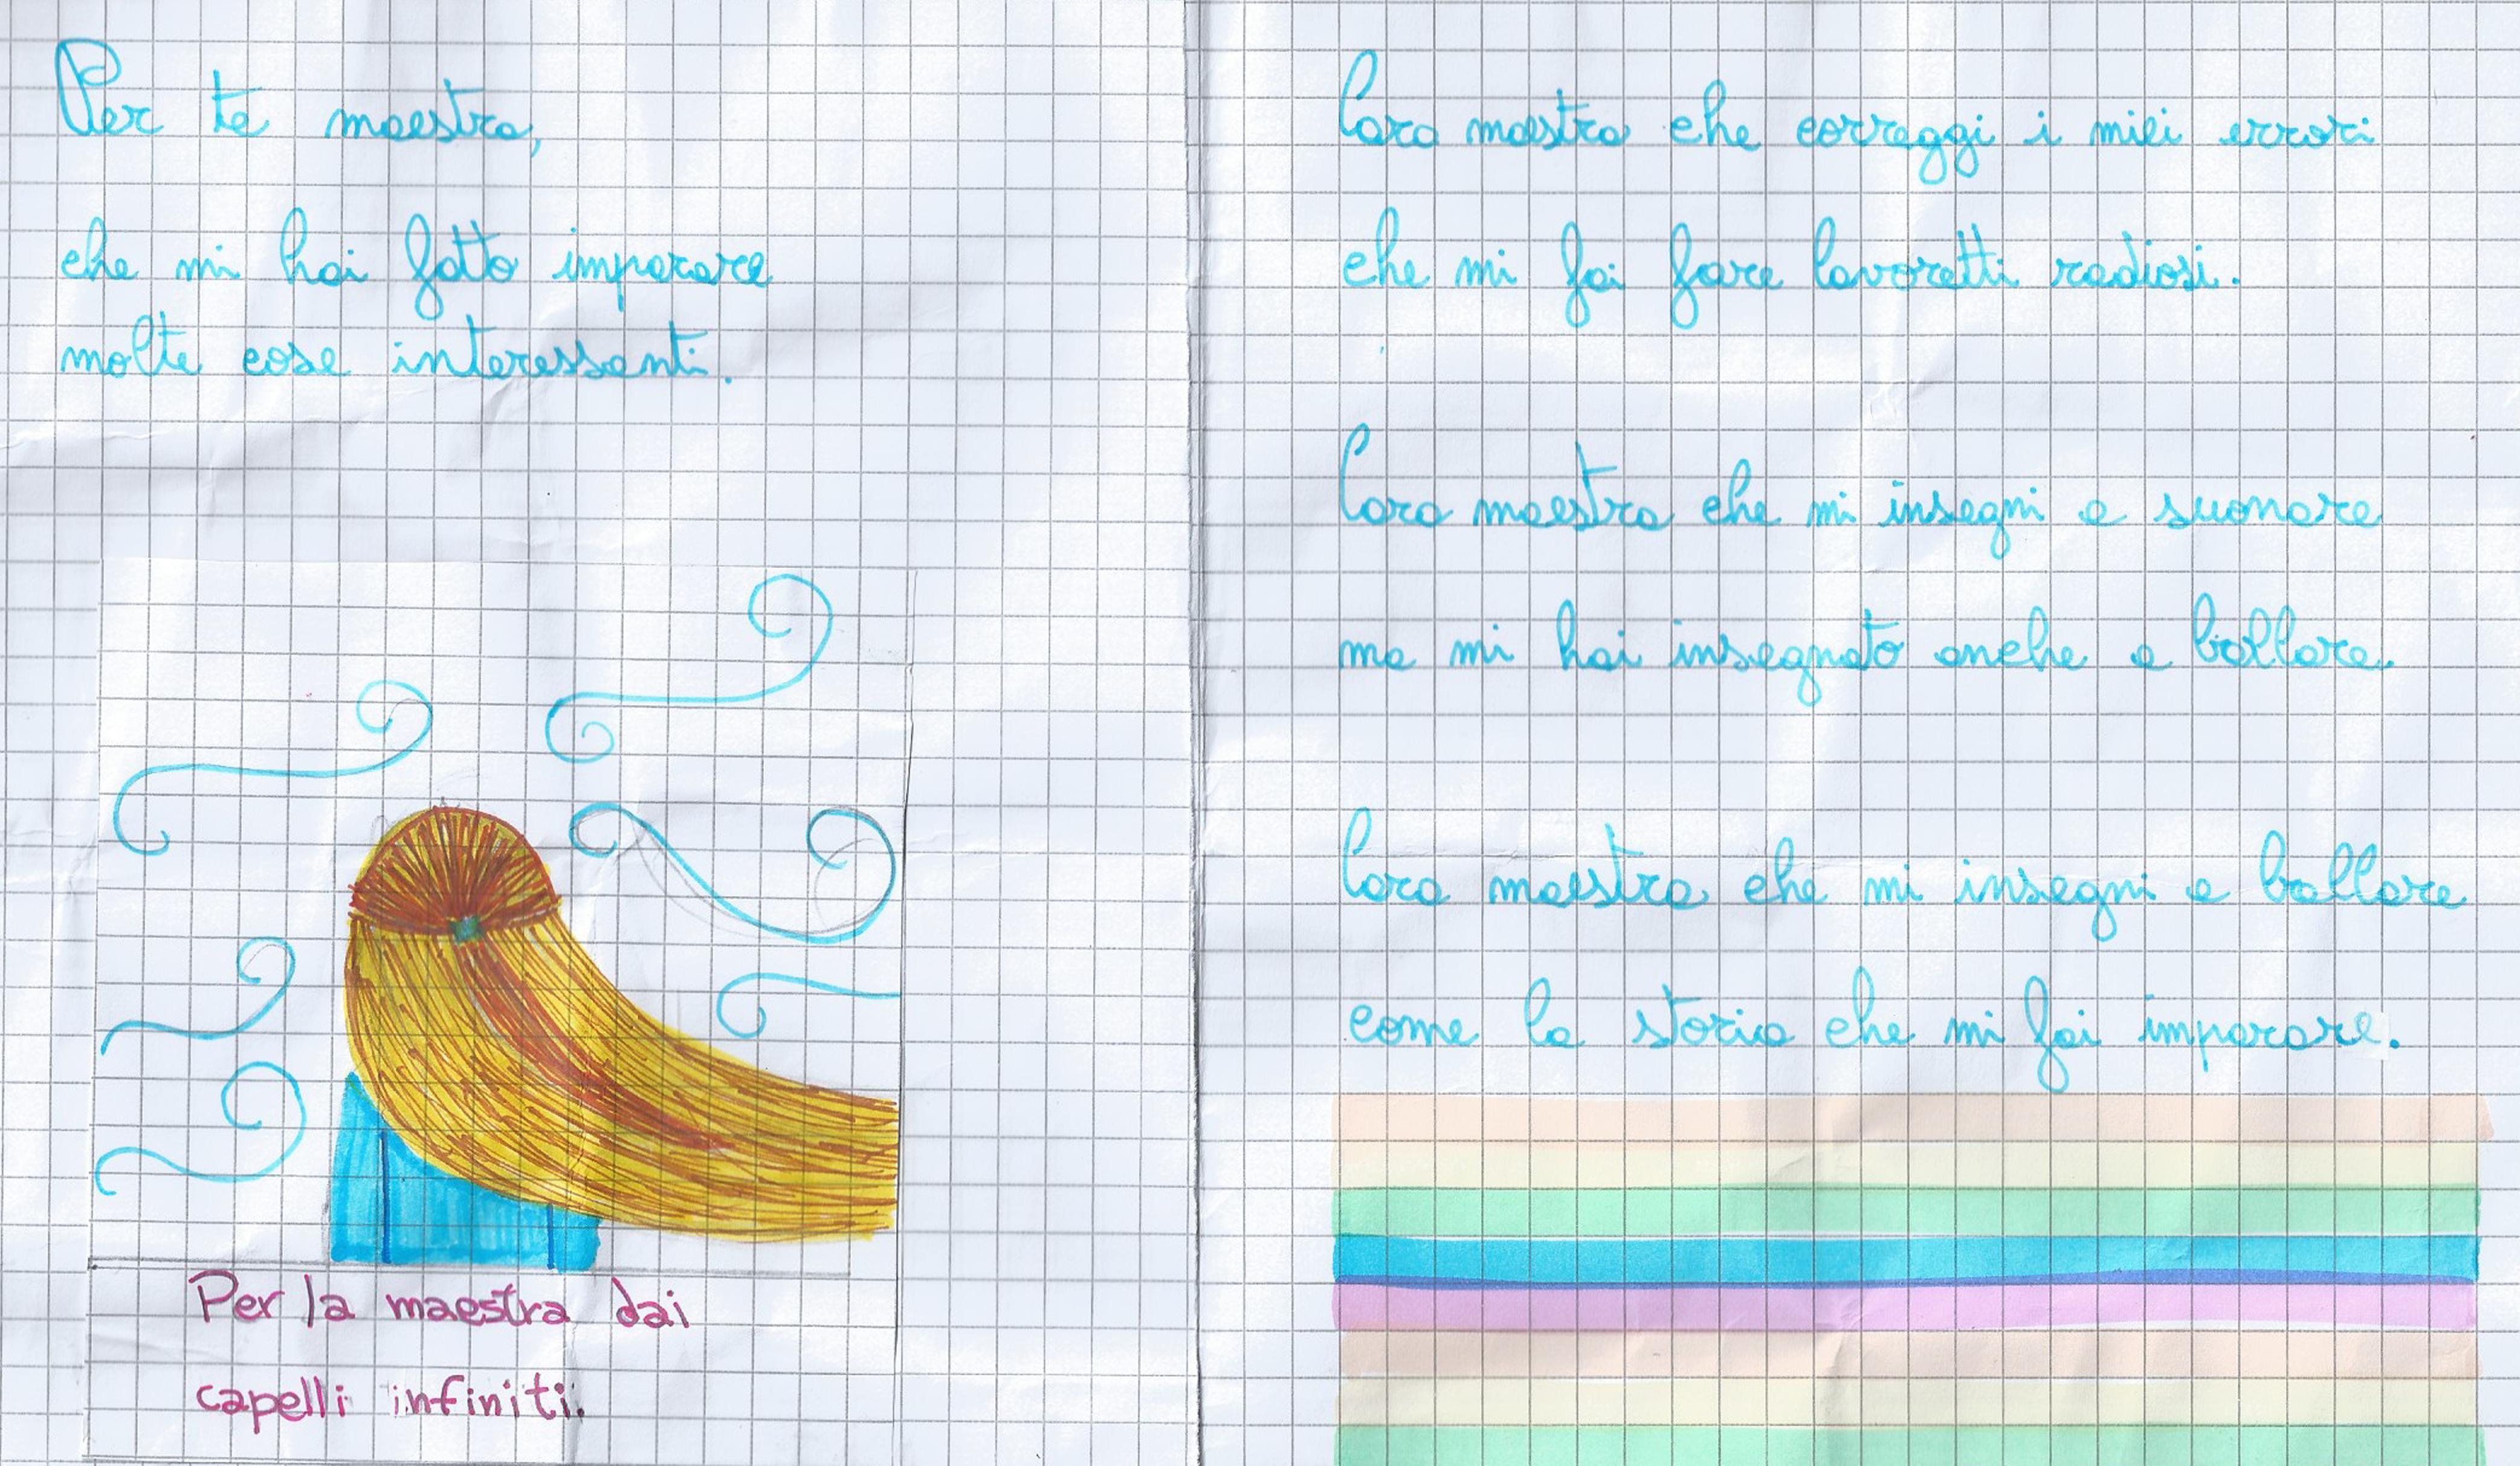 Per te maestra,
che mi hai fatto imparare
molte cose interessanti.
Per la maestra dai
capelli infiniti.
Cara maestra che correggi i miei errori
che mi fai fare lavoretti radiosi.
Cara maestra che mi insegni a suonare
ma mi hai insegnato anche a ballare.
Cara maestra che mi insegni a ballare
come la storia che mi fai imparare.